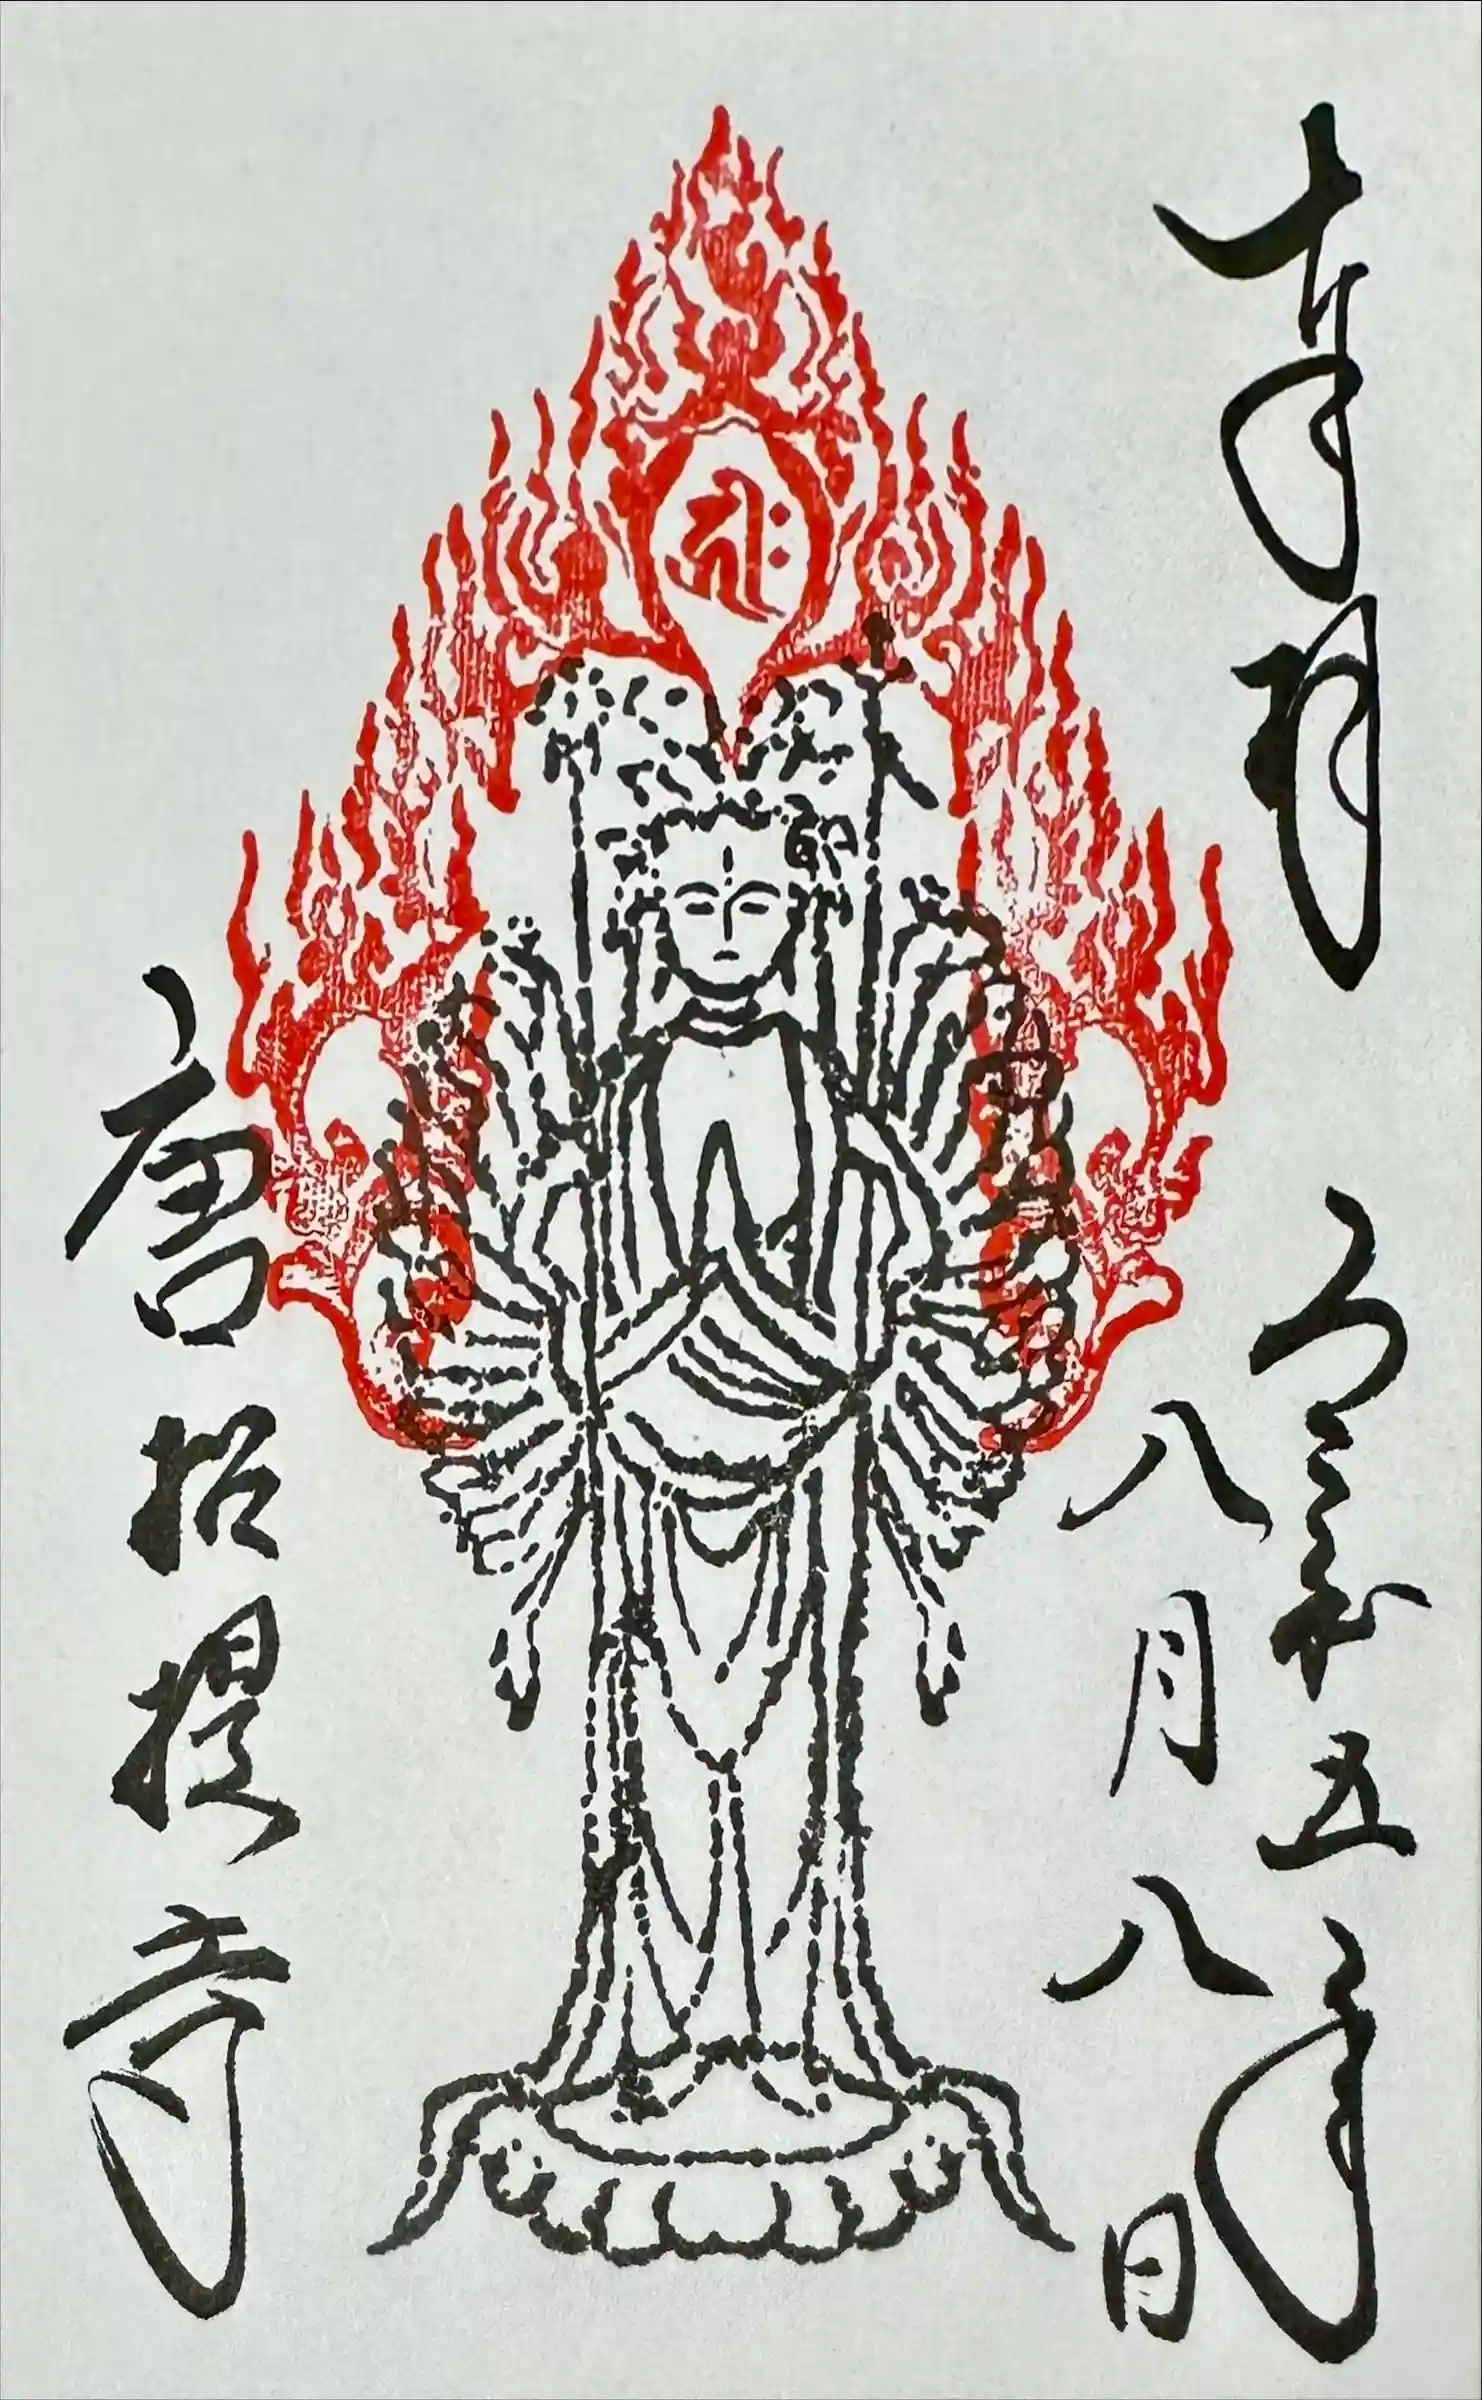 奉拝 令和五年
八月八日
𑖮𑖿𑖨𑖱𑖾
唐招提寺